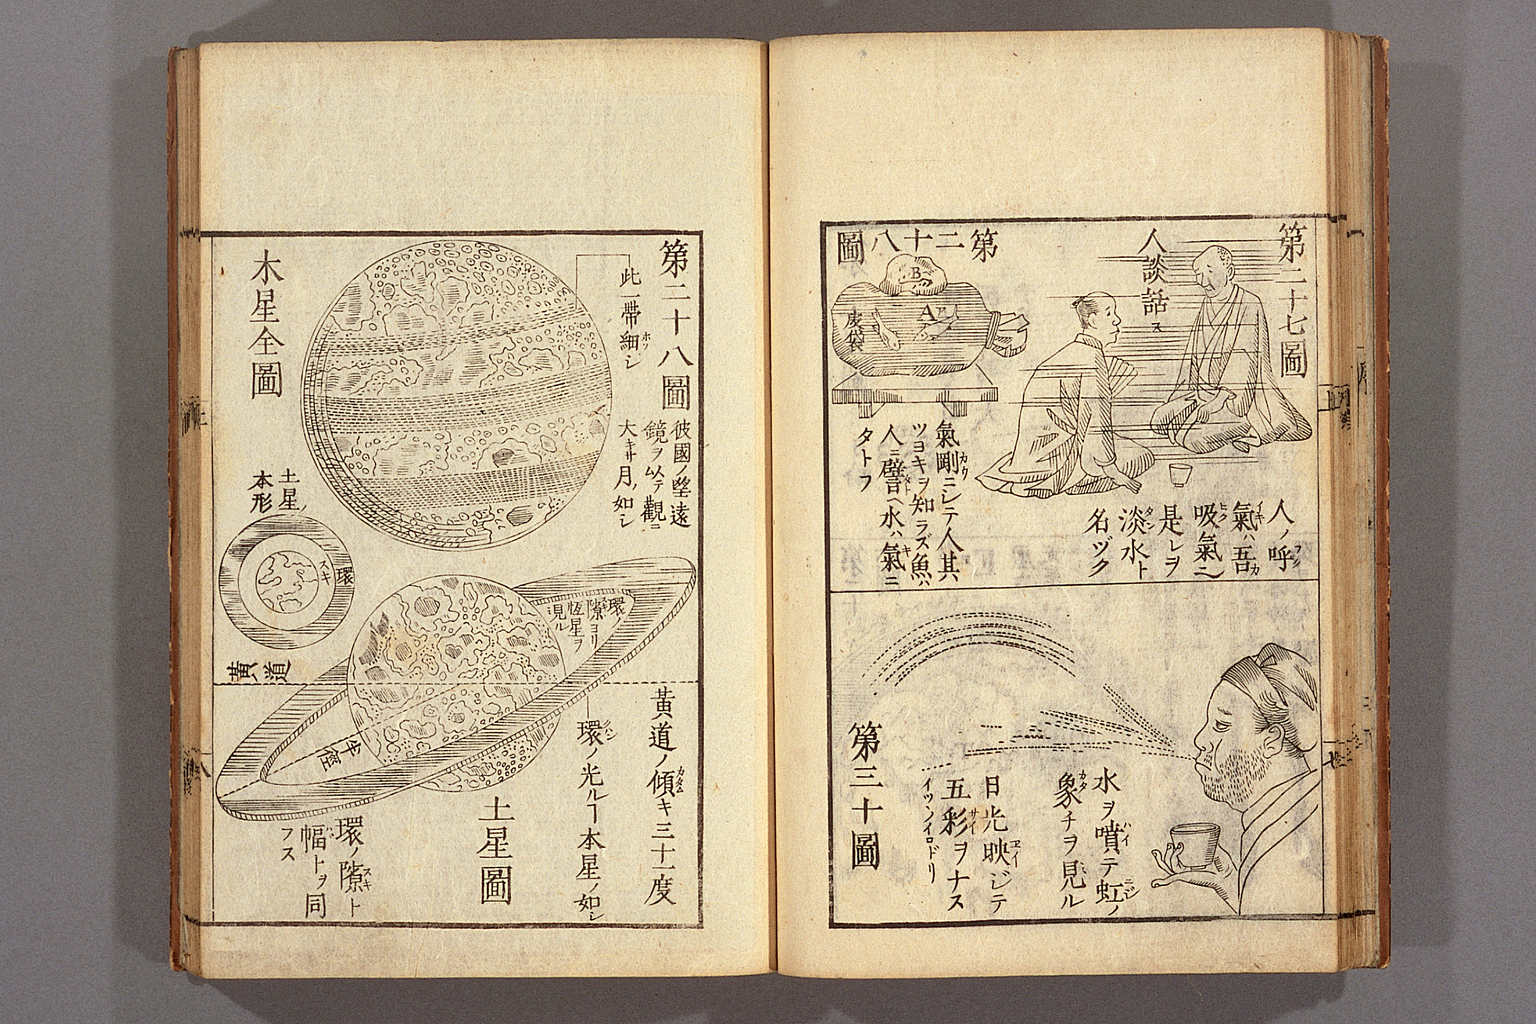 第二十七圖
人談話ス
人ノ呼
氣ハ吾
吸氣ニ
是レヲ
淡水ト
名ヅク
第二十八圖
B
A
皮袋
氣剛ニシテ人其
ツヨキヲ知ラズ魚ハ
人ニ譬ヘ水ハ氣ニ
タトフ
水ヲ噴テ虹ノ
象チヲ見ル
日光映ジテ
五彩ヲナス
イツツイロドリ
第三十圖
第二十八圖
彼國ノ望遠
鏡ヲ以テ觀ニ
大キサ月ノ如シ
此一帶細シ
木星全圖
土星ノ
本形
環
スキ
黄道
環ノ
隙ヨリ
恆星ヲ
見ル
黄道ノ傾キ三十一度
環ノ光ル丁本星ノ如シ
土星圖
半徑
環ノ隙ト
幅トヲ同
フス